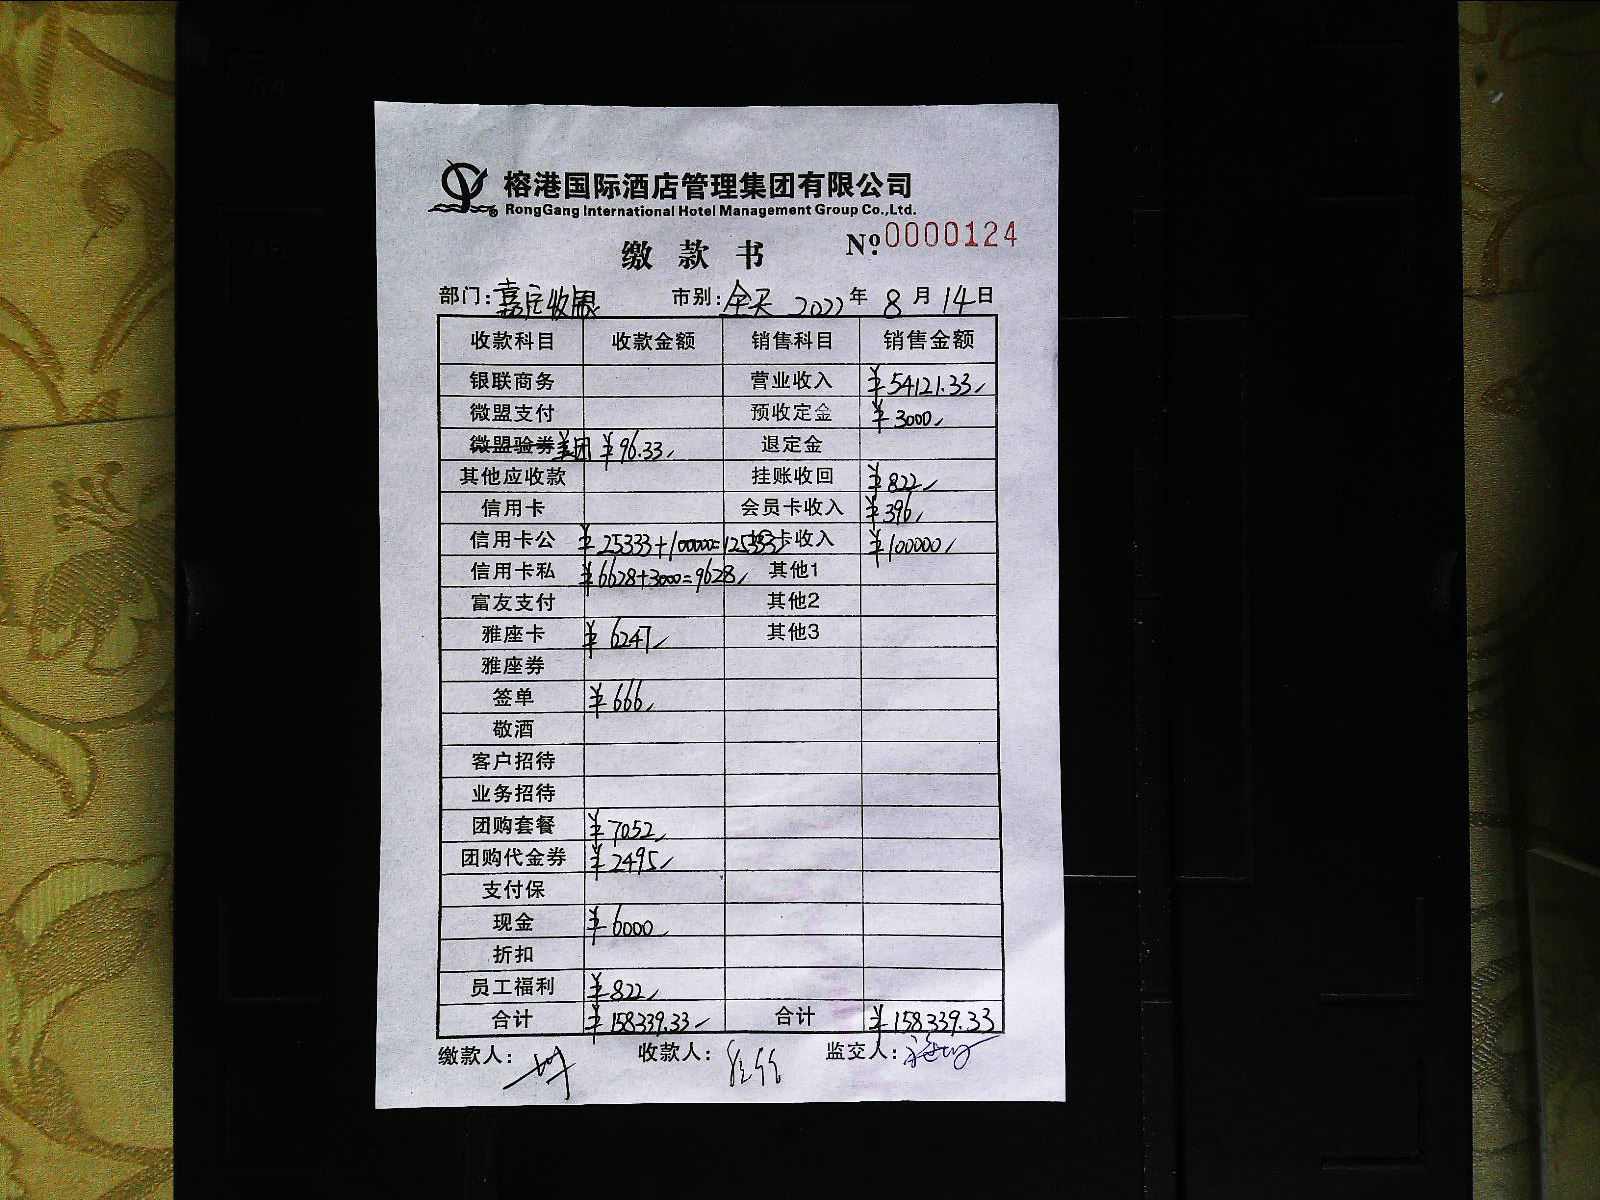 榕港国际酒店管理集团有限公司
RongGang International Hotel Management Group Co.,Ltd.
缴款书 Nº:0000124
部门:嘉定收银 市别:全天 2022年8月14日
收款科目 收款金额 销售科目 销售金额
银联商务 营业收入 ¥54121.33
微盟支付 预收定金 ¥3000
微盟验券美团 ¥96.33 退定金
其他应收款 挂账收回 ¥822
信用卡 会员卡收入 ¥396
信用卡公 ¥25333+100000=125333 卡收入 ¥100000
信用卡私 ¥6628+3000=9628 其他1
富友支付 其他2
雅座卡 ¥6247 其他3
雅座券
签单 ¥666
敬酒
客户招待
业务招待
团购套餐 ¥7052
团购代金券 ¥2495
支付保
现金 ¥6000
折扣
员工福利 ¥822
合计 ¥158339.33 合计 ¥158339.33
缴款人: 收款人: 监交人: